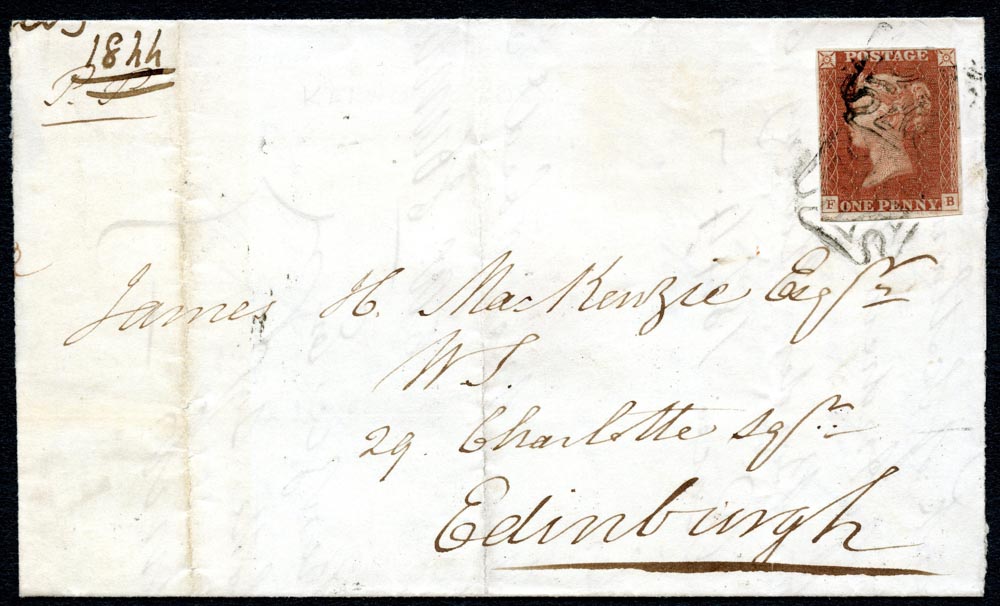 1844
P. P.
POSTAGE
ONE PENNY
F B
James H. MacKenzie Esqr
W S.
29. Charlotte Sqr.
Edinburgh